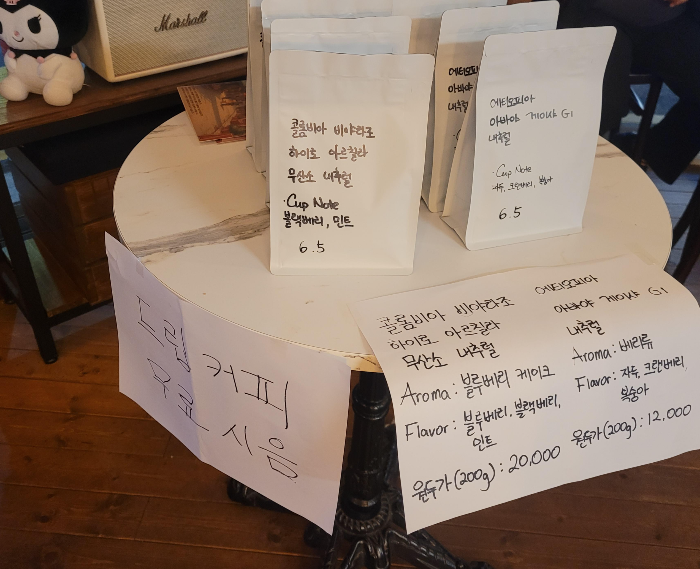 Marshall
콜롬비아 비야라조
하이로 아르칠라
무산소 내추럴
·Cup Note
블랙베리, 민트
6.5
에티오피아
아바야
에티오피아
아바야 게이샤 G1
내추럴
·Cup Note
자두, 크랜베리, 복숭아
6.5
드립 커피
무료 시음
콜롬비아 비야라조
하이로 아르칠라
무산소 내추럴
Aroma : 블루베리 케이크
Flavor : 블루베리, 블랙베리,
민트
원두가 (200g) : 20,000
에티오피아
아바야 게이샤 G1
내추럴
Aroma : 베리류
Flavor : 자두, 크랜베리,
복숭아
원두가 (200g) : 12,000